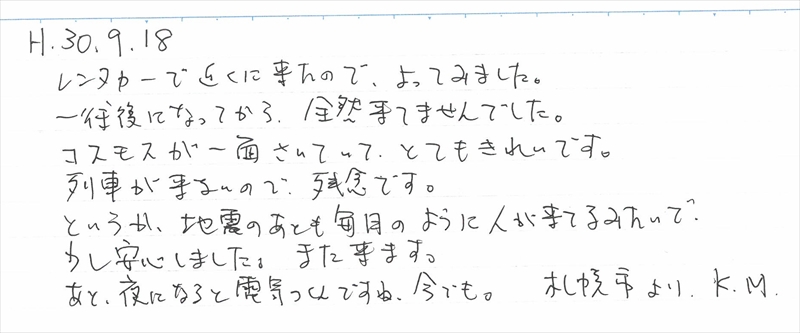 H.30.9.18
レンタカーで近くに来たので、よってみました。
一往後になってから、全然来てませんでした。
コスモスが一面さいていて、とてもきれいです。
列車が来ないので、残念です。
というか、地震のあとも毎日のように人が来てるみたいで、
少し安心しました。また来ます。
あと、夜になると電気つくんですね、今でも。 札幌市より、K.M.